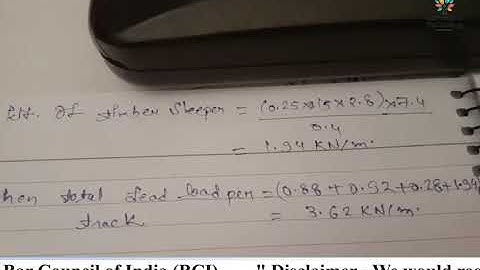 wt. of timber sleeper = (0.25×·15×2.8)×7.4
0.4
= 1.94 KN/m.
then total dead load per = (0.88+0.92+0.28+1.94)
track = 3.62 KN/m.
Bar Council of India (BCI) " Disclaimer - We would